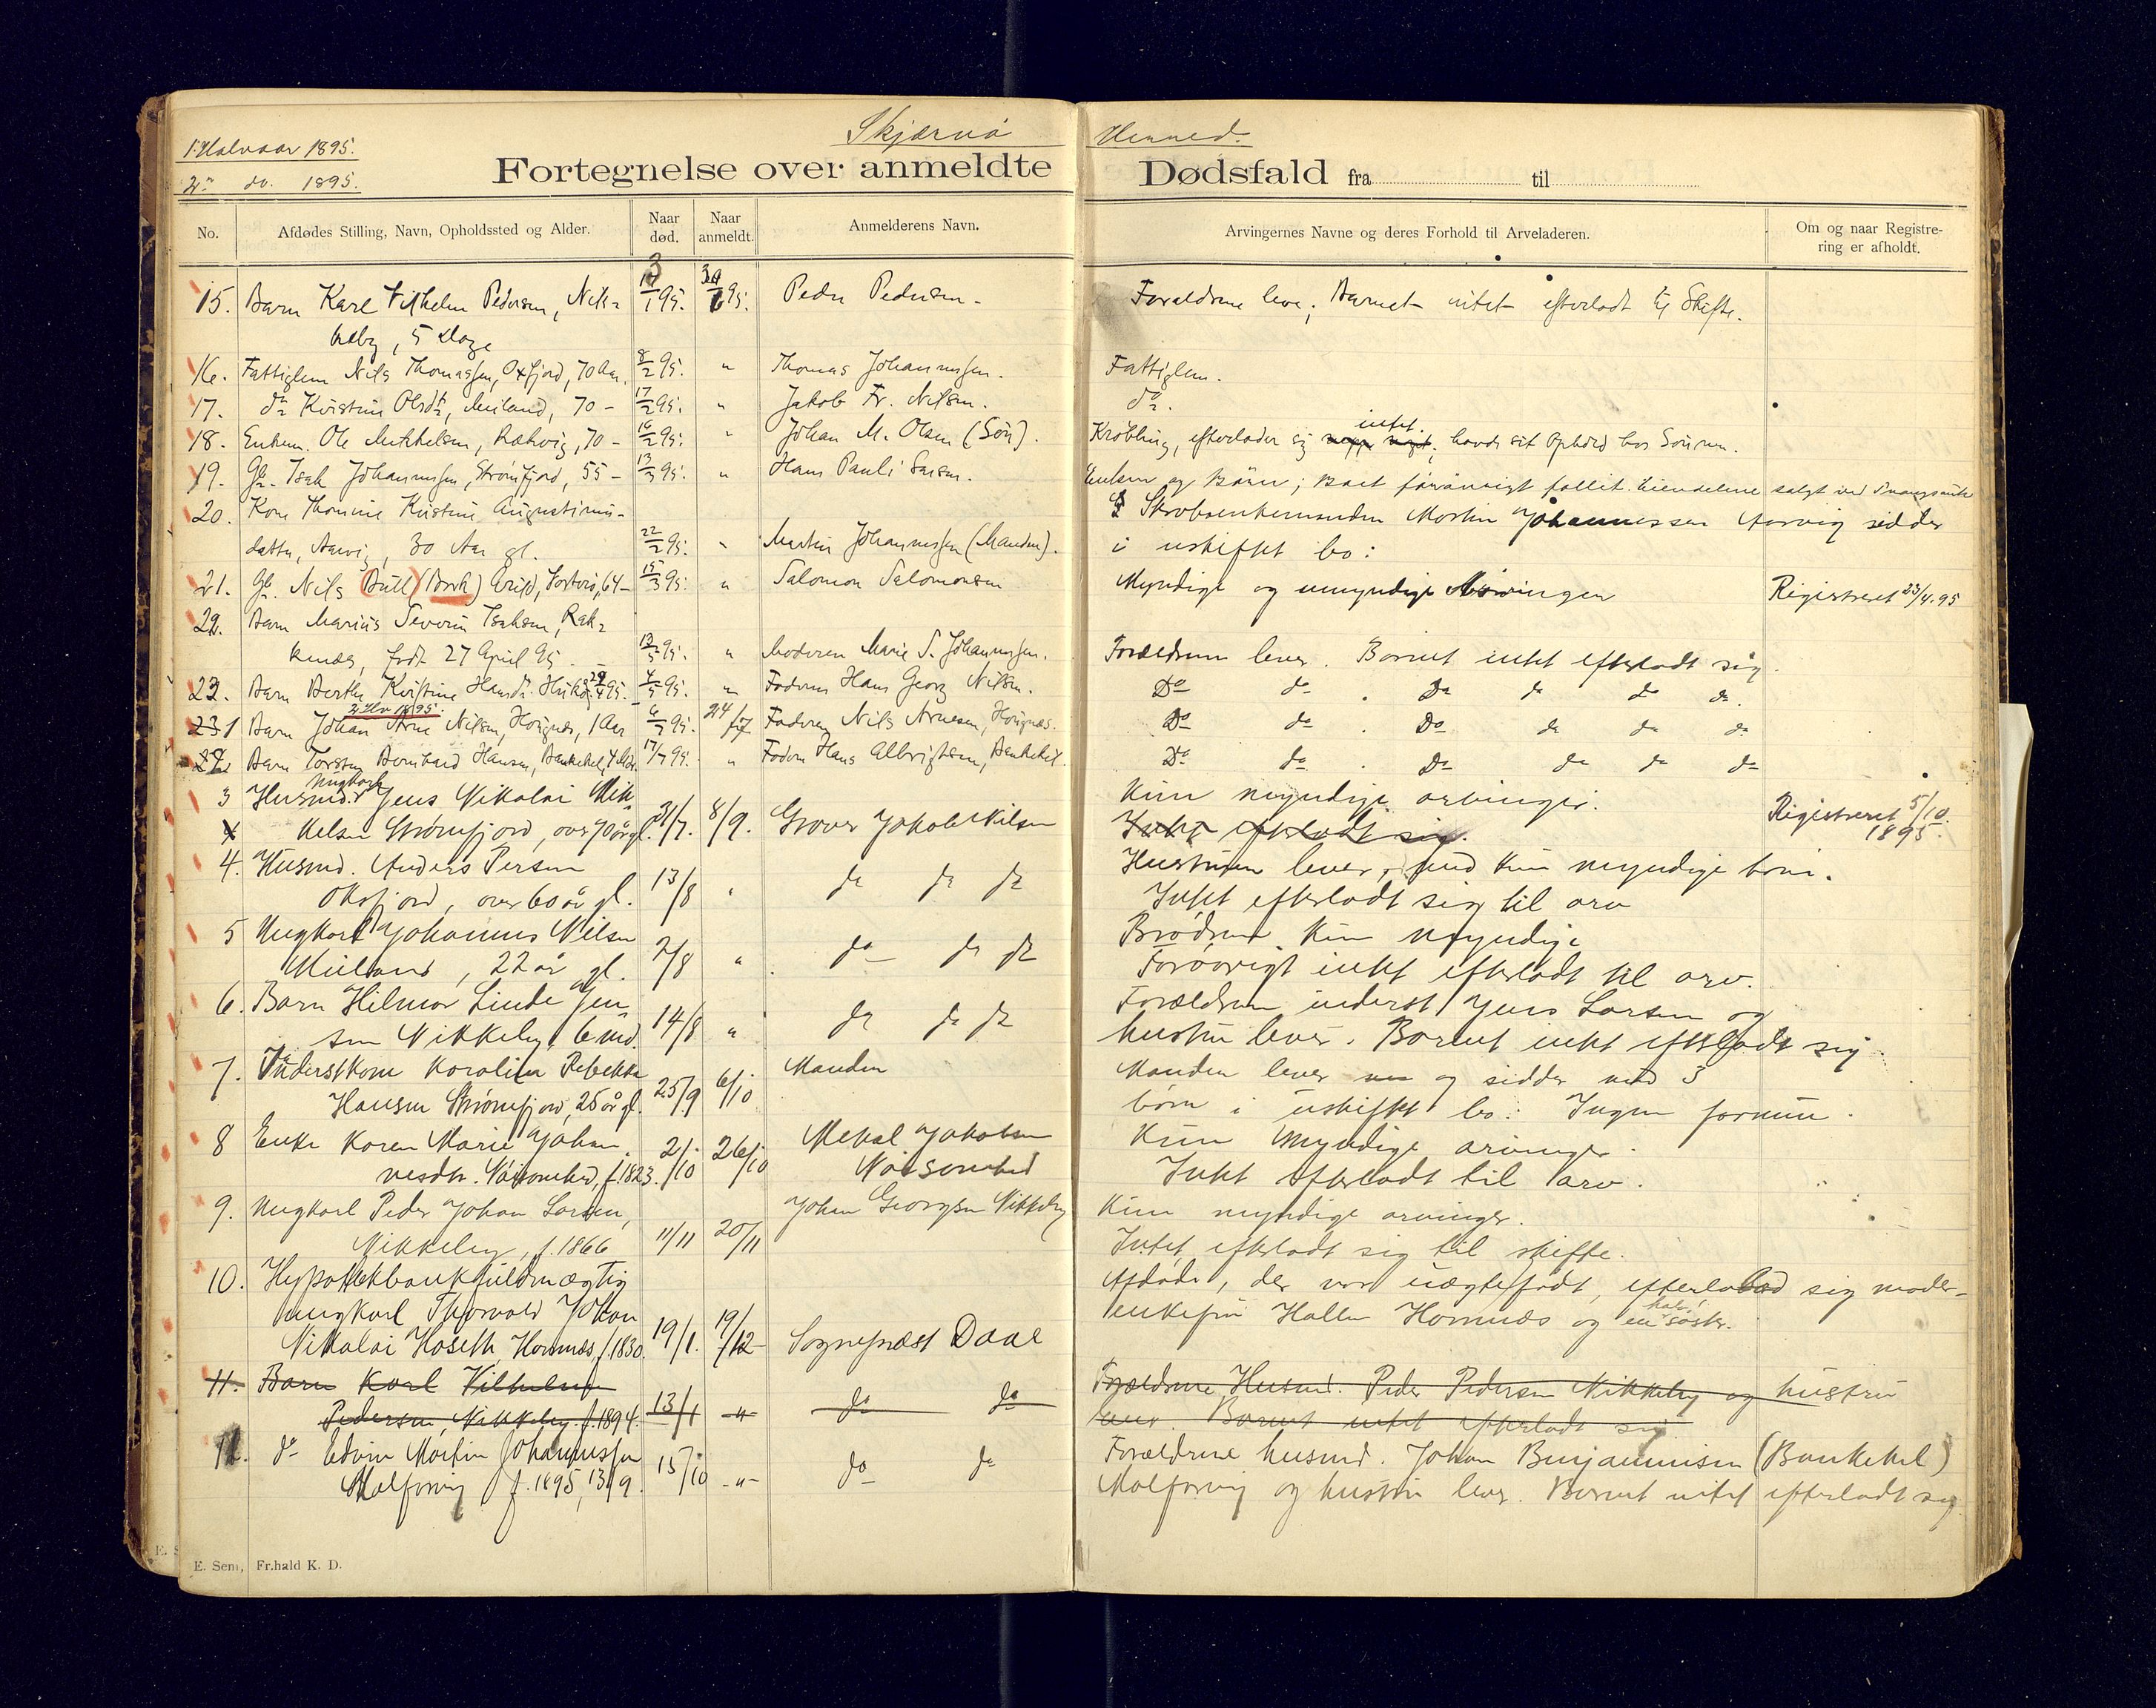 1. Halvaar 1895.
2n do. 1895.
Skjærvø
Herred.
Fortegnelse over anmeldte Dødsfald fra til
No.
Afdødes Stilling, Navn, Opholdssted og Alder.
Naar død.
Naar anmeldt.
Anmelderens Navn.
Arvingernes Navne og deres Forhold til Arveladeren.
Om og naar Registre-
ring er afholdt.
15. Barn Karl Vilhelm Pedersen, Nik- 95. 95. Peder Pedersen. Forældrene leve; Barnet intet efterladt til Skifte.
keby, 5 Dage
16. Fattiglem Nils Thomassen, Oxfjord, 70 Aar. 8/2 95. " Thomas Johannessen. Fattiglem.
17. do Kristine Olsdt, Meiland, 70 - 17/2 95. " Jakob Fr. Nilsen. do.
18. Enkem. Ole Mikkelsen, Rækvig, 70 - 16/2 95. " Johan M. Olsen (Søn). Krøbling, efterlader sig intet; havde sit Ophold hos Sønnen.
19. Gb. Isak Johannessen, Strømfjord, 55 - 13/3 95. " Hans Pauli Larsen. Enken og Børn; Boet forøvrigt fallit. Eiendelene solgt ved Tvangsauk
20. Kone Thomine Kristine Augustinus- Skrobsenkemanden Morten Johannessen Aarvig sidder
datter, Aarvig, 30 Aar gl. 22/2 95. " Martin Johannessen (Manden). i uskiftet bo:
21. Gb. Nils Bull (Brok) Arild, Hortvis, 64 - 15/3 95. " Salomon Salomonsen Myndige og umyndige Arvinger Registreret 23/4. 95
22. Barn Marius Severin Isaksen, Rak-
kenæs, født 27 April 95. - 12/5 95. " Moderen Marie S. Johannessen. Forældrene lever. Barnet intet efterladt sig
23. Barn Berthe Kristine Hansdt. 29/4 95. 4/5 95. " Faderen Hans Georg Nilsen. Do do . Do do do do.
2 Hlv 1895.
23 1 Barn Johan Arne Nilsen, Hoignæs, 1 Aar 6/7 95. 24/7 Faderen Nils Arnesen, Hoignæs. Do do . Do do do do
2 Barn Torsten Bernhard Hansen, Bankekel, 4 Mdr. 17/7 95. " Faderen Hans Albrigtsen, Bankekel. Do do . Do do do do
3 Husmd. Ungkarl Jens Nikolai Mik- Kun myndige arvinger. Registreret 5/10.
kelsen Strømfjord, over 70 år gl. 31/7. 8/9. Graver Jakob Nilsen Intet efterladt sig. 1895.
4. Husmd. Anders Persen Hustruen lever, med kun myndige børn.
Oksfjord, over 60 år gl. 13/8 " do do do Intet efterladt sig til arv
5 Ungkarl Johannes Nilsen Brødrene kun myndige
Meiland, 22 år gl. 2/8 " do do do Forøvrigt intet efterladt til arv.
6. Barn Hilmar Linde Jen- Forældrene inderst Jens Larsen og
sen Nikkeby, 6 md. 14/8 " do do do hustru lever. Barnet intet efterladt sig.
7. Inderstkone Karolina Rebekka Manden Manden lever og sidder med 3
Hansen Strømfjord, 25 år gl. 25/9 6/10 børn i uskiftet bo: Ingen formue.
8 Enke Karen Marie Johan- 2/10 26/10 Mekal Jakobsen Kun myndige arvinger.
nesdtr. Vaisomhed, f. 1823. Vaisomhed Intet efterladt til arv.
9. Ungkarl Peder Johan Larsen, Johan Georgsen Nikkeby Kun myndige arvinger.
Nikkeby, f. 1866 11/11 20/11 Intet efterladt sig til skifte.
10. Hypothekbankfuldmægtig Afdøde, der var uægtefødt, efterlod sig moder-
ungkarl Thorvald Johan enkefru Hallen Havnnæs og en halvsøster.
Nikolai Hoseth, Havnnæs, f. 1830. 19/1. 19/12 Sogneprest Daae
11. Barn Karl Vilhelm Forældrene Husmd. Peder Pedersen Nikkeby og hustru
Pedersen, Nikkeby. f. 1894. 13/1 " do do lever. Barnet intet efterladt sig.
12. do Edvin Martin Johannessen 15/10 " do do Forældrene husmd. Johan Benjaminsen (Bankekel)
Malforvig f. 1895, 13/9. Malforvig og hustru lever. Barnet intet efterladt sig.
E. Sem, Fr.hald K. D.